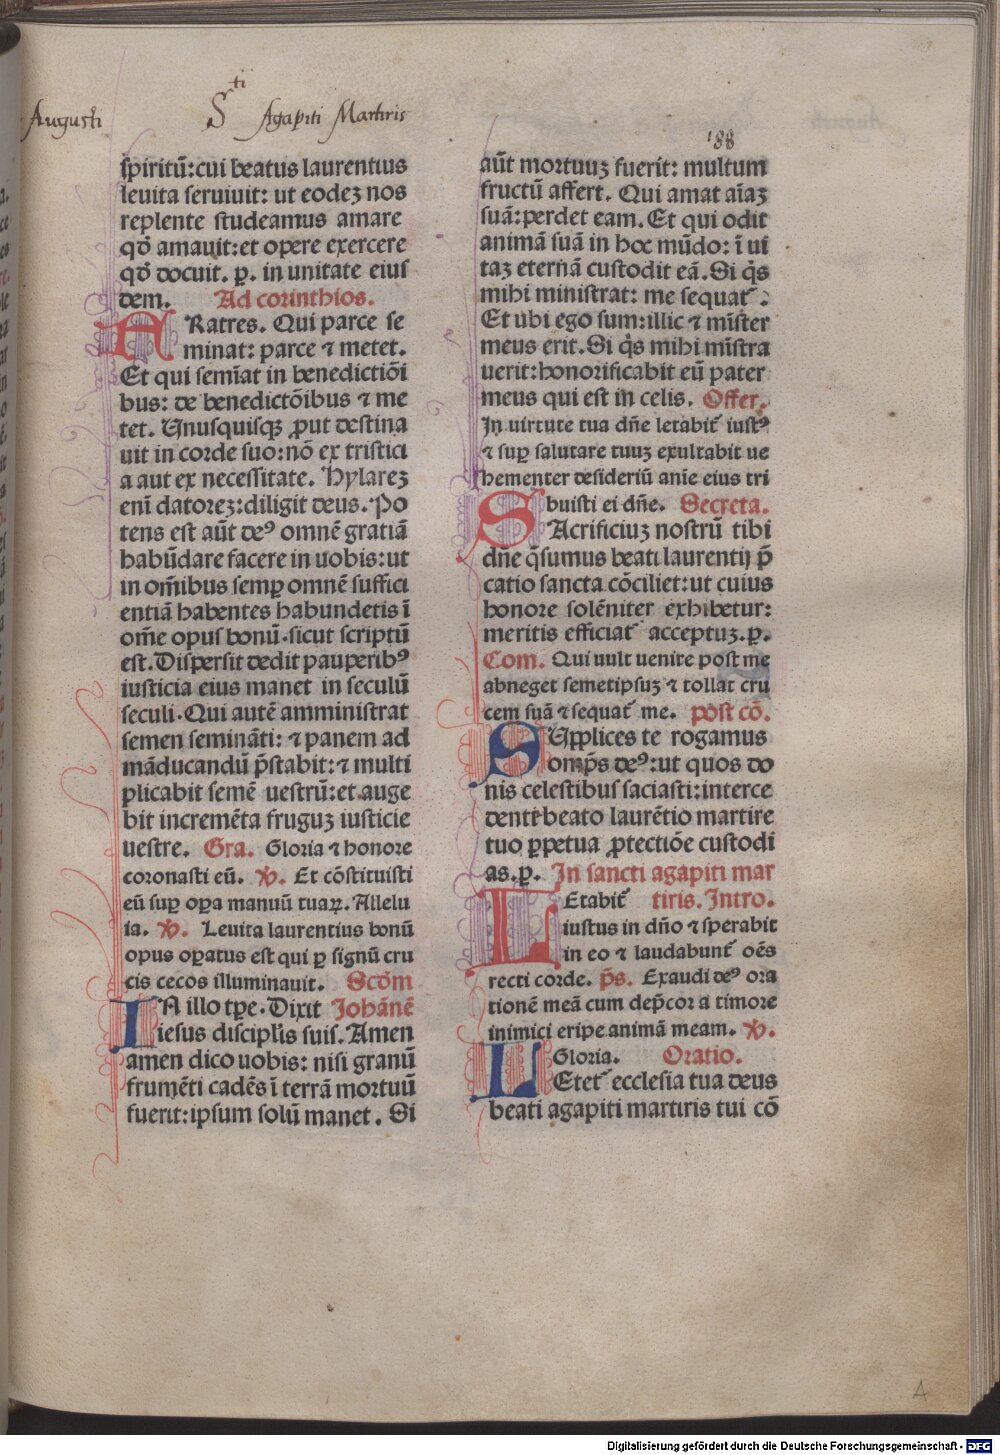 Augusti
Sti Agapiti Martiris
188
spiritū: cui beatus laurentius
leuita seruiuit: ut eodeʒ nos
replente studeamus amare
qď amauit: et opere exercere
qď docuit. p̱. in unitate eius
dem. Ad corinthios.
FRatres. Qui parce se
minat: parce ⁊ metet.
Et qui semīat in benedictiōi
bus: de benedictōibus ⁊ me
tet. Vnusquisqʒ ꝓut destina
uit in corde suo: nō ex tristici
a aut ex necessitate. Hylareʒ
enī datoreʒ: diligit deus. Po
tens est aūt deꝰ omnē gratiā
habūdare facere in uobis: ut
in om̄ibus semꝑ omnē suffici
entiā habentes habundetis ī
om̄e opus bonū. sicut scriptū
est. Dispersit dedit pauperibꝰ
iusticia eius manet in seculū
seculi. Qui autē amministrat
semen semināti: ⁊ panem ad
māducandū p̄stabit: ⁊ multi
plicabit semē uestrū: et auge
bit incremēta fruguʒ iusticie
uestre. Gra. Gloria ⁊ honore
coronasti eū. ℣. Et cōstituisti
eū suꝑ oꝑa manuū tuaꝝ. Allelu
ia. ℣. Leuita laurentius bonū
opus oꝑatus est qui ꝑ signū cru
cis cecos illuminauit. Scđm
IN illo tp̄e. Dixit Johānē
iesus disciplis suis. Amen
amen dico uobis: nisi granū
frumēti cadēs ī terrā mortuū
fuerit: ipsum solū manet. Si
aūt mortuuʒ fuerit: multum
fructū affert. Qui amat aīaʒ
suā: perdet eam. Et qui odit
animā suā in hoc mūdo: ī ui
taʒ eternā custodit eā. Si q̇s
mihi ministrat: me sequat᷑.
Et ubi ego sum: illic ⁊ mīster
meus erit. Si q̇s mihi mīstra
uerit: honorificabit eū pater
meus qui est in celis. Offer.
In uirtute tua dn̄e letabit᷑ iustꝰ
⁊ suꝑ salutare tuuʒ exultabit ue
hementer desideriū anīe eius tri
buisti ei dn̄e. Secreta.
SAcrificiuʒ nostrū tibi
dn̄e q̄sumus beati laurentij p̄
catio sancta cōciliet: ut cuius
honore solēniter exhibetur:
meritis efficiat᷑ acceptuʒ. p̱.
Com. Qui uult uenire post me
abneget semetipsuʒ ⁊ tollat cru
cem suā ⁊ sequat᷑ me. post cō.
SUpplices te rogamus
omp̄s deꝰ: ut quos do
nis celestibus saciasti: interce
denti beato laurētio martire
tuo ꝑpetua ꝓtectiōe custodi
as. p̱. In sancti agapiti mar
LEtabit᷑ tiris. Intro.
iustus in dn̄o ⁊ sperabit
in eo ⁊ laudabunt᷑ oēs
recti corde. p̄s. Exaudi deꝰ ora
tionē meā cum dep̄cor a timore
inimici eripe animā meam. ℣.
Gloria. Oratio.
LEtet᷑ ecclesia tua deus
beati agapiti martiris tui cō
4
Digitalisierung gefördert durch die Deutsche Forschungsgemeinschaft - DFG